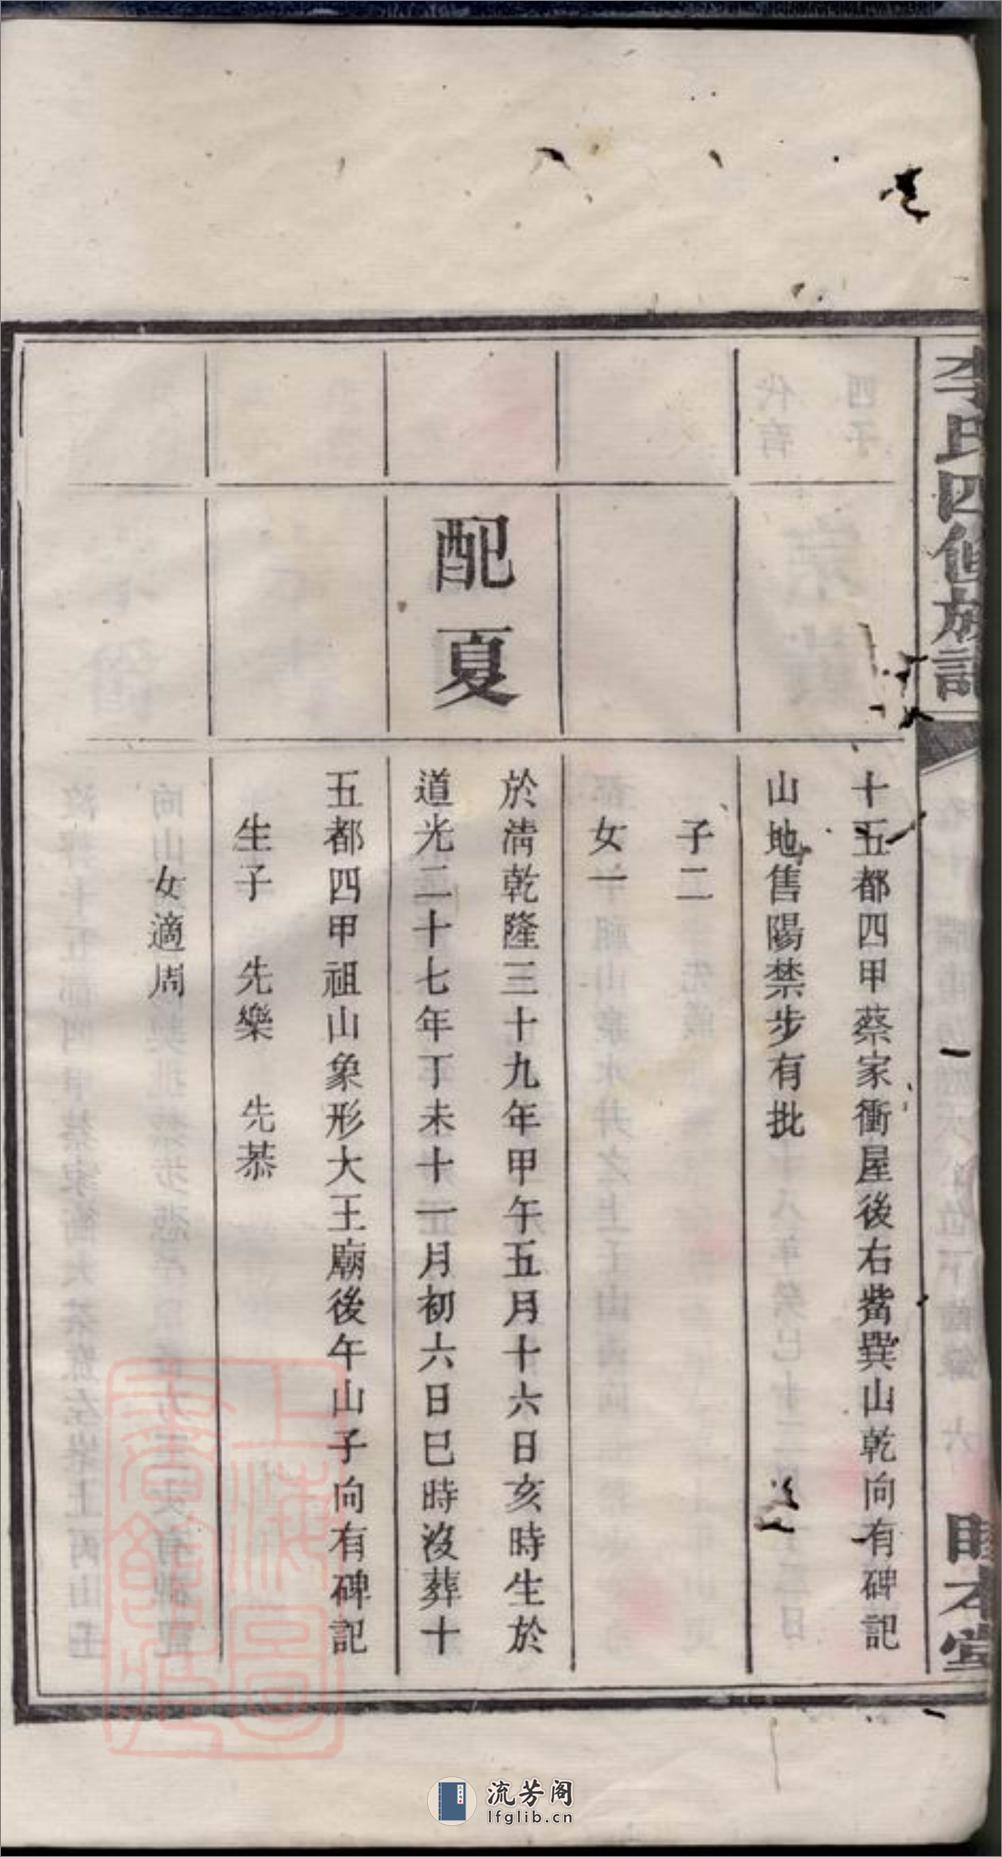 李氏四修族譜
睦本堂
十五都四甲蔡家衝屋後右觜巽山乾向有碑記
山地售陽禁步有批
子二
女一
配夏
於淸乾隆三十九年甲午五月十六日亥時生於
道光二十七年丁未十一月初六日巳時沒葬十
五都四甲祖山象形大王廟後午山子向有碑記
生子 先樂 先恭
女適周
上海圖書館藏
流芳阁
lfglib.cn